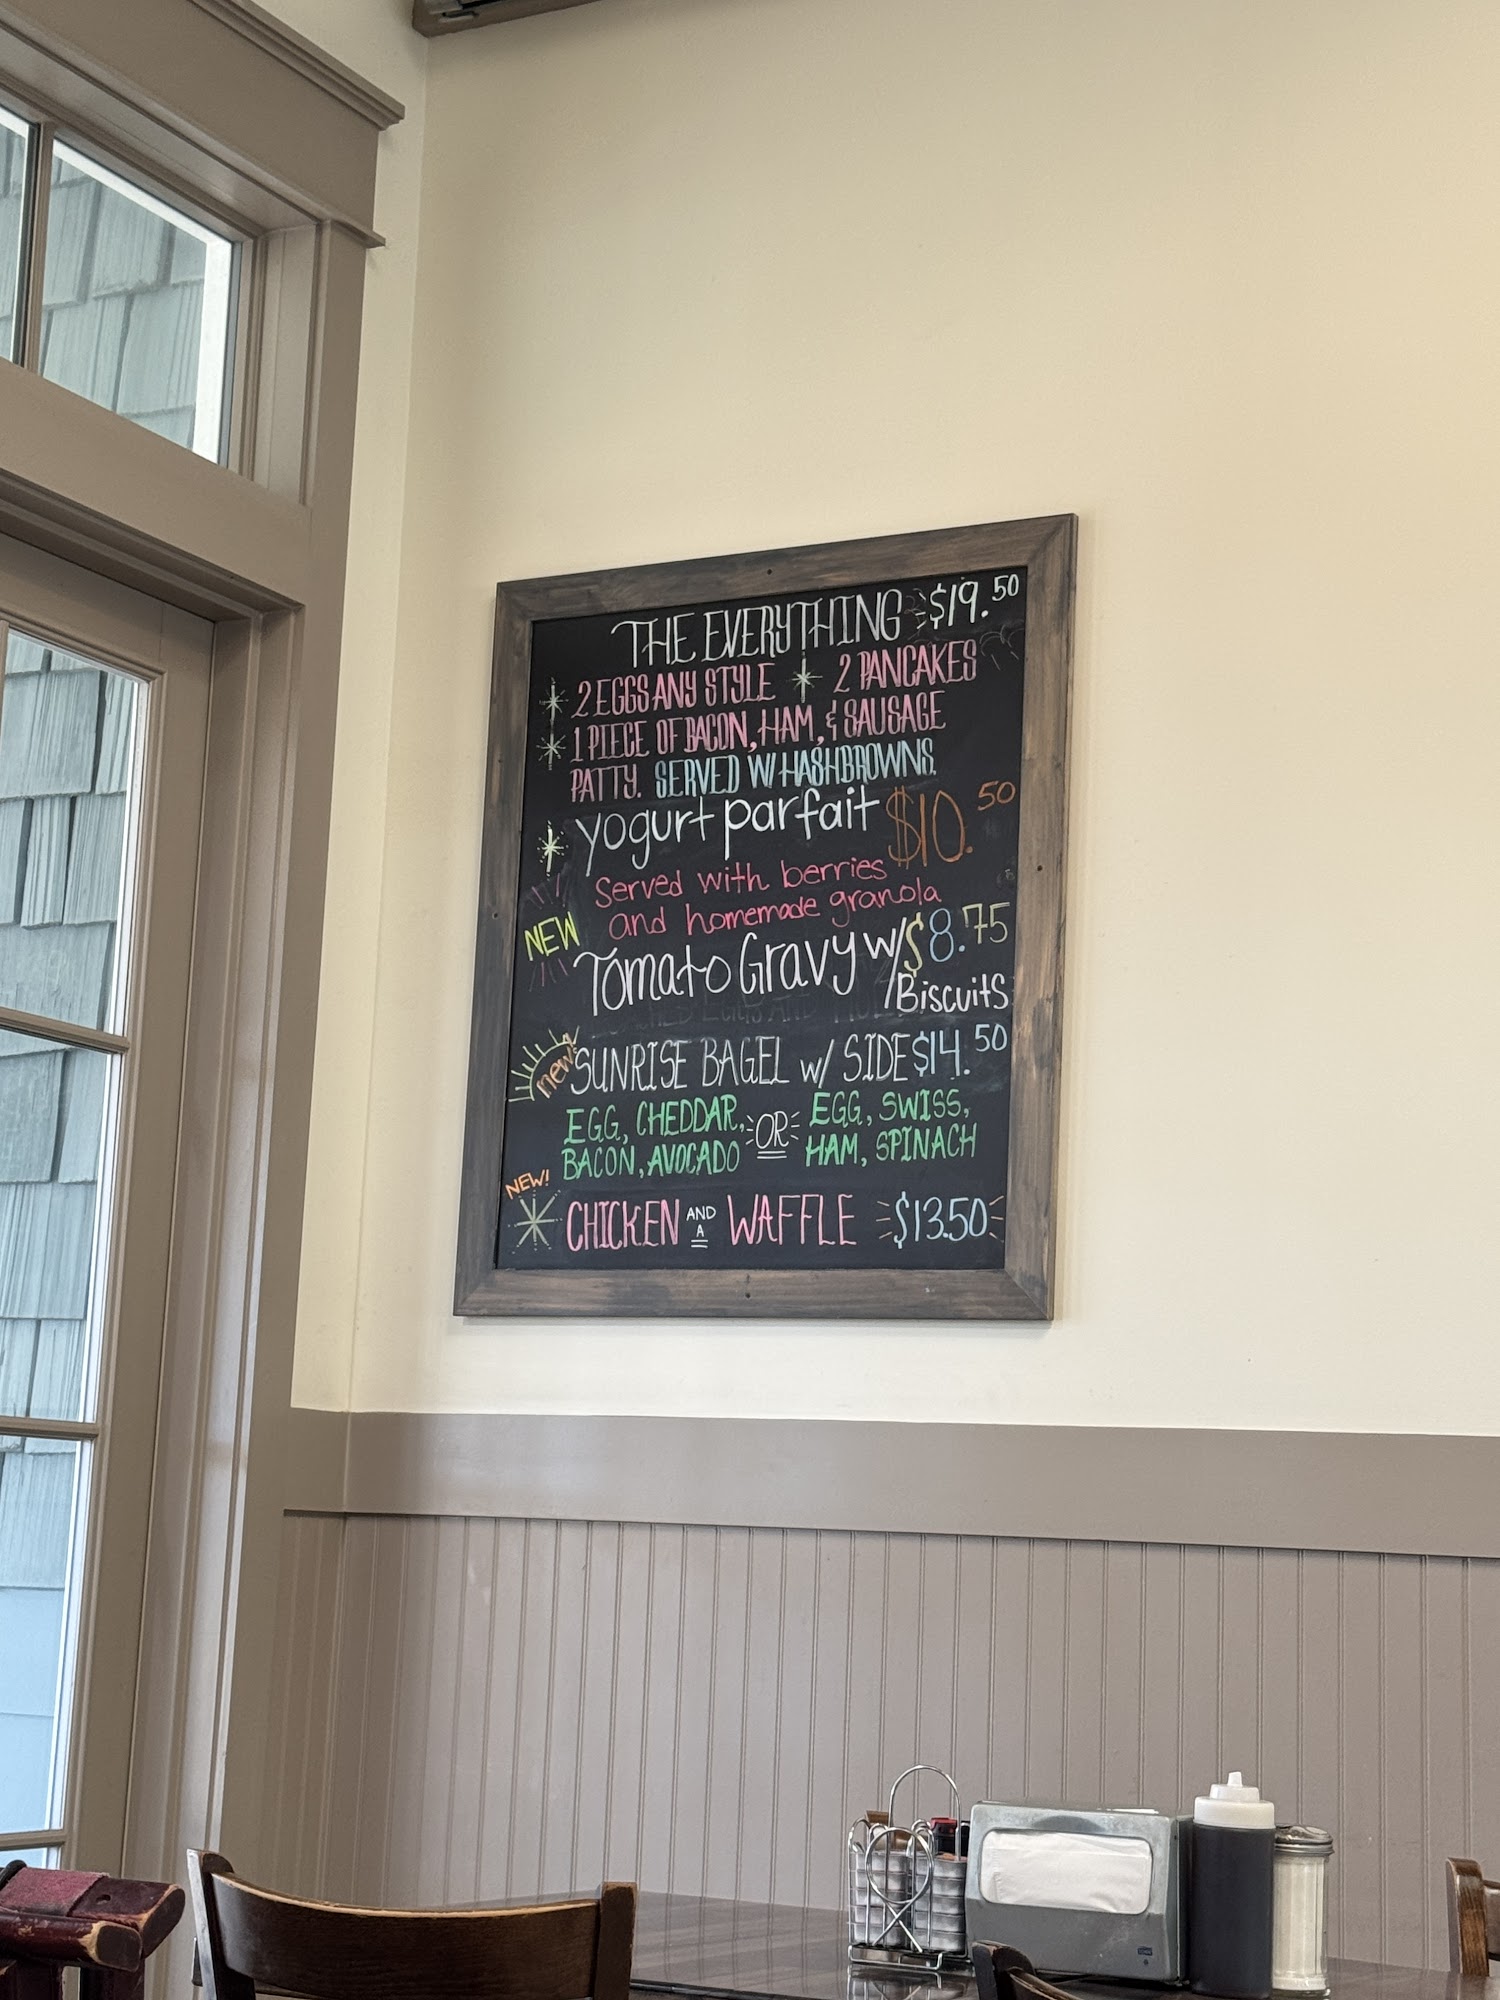 THE EVERYTHING $19.50
2 EGGS ANY STYLE 2 PANCAKES
1 PIECE OF BACON, HAM, & SAUSAGE
PATTY. SERVED W/ HASHBROWNS.
yogurt parfait $10.50
served with berries
and homemade granola
NEW
Tomato Gravy w/ $8.75
/Biscuits
new!
SUNRISE BAGEL w/ SIDE $14.50
EGG, CHEDDAR, OR EGG, SWISS,
BACON, AVOCADO HAM, SPINACH
NEW!
CHICKEN AND A WAFFLE $13.50